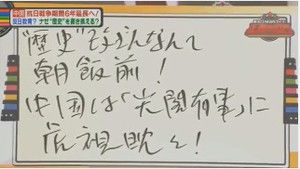 中国 抗日戦争期間6年延長へ!
反日教育? ナゼ“歴史”を書き換える?
“歴史”改ざんなんて
朝飯前!
中国は「尖閣有事」に
虎視眈々!